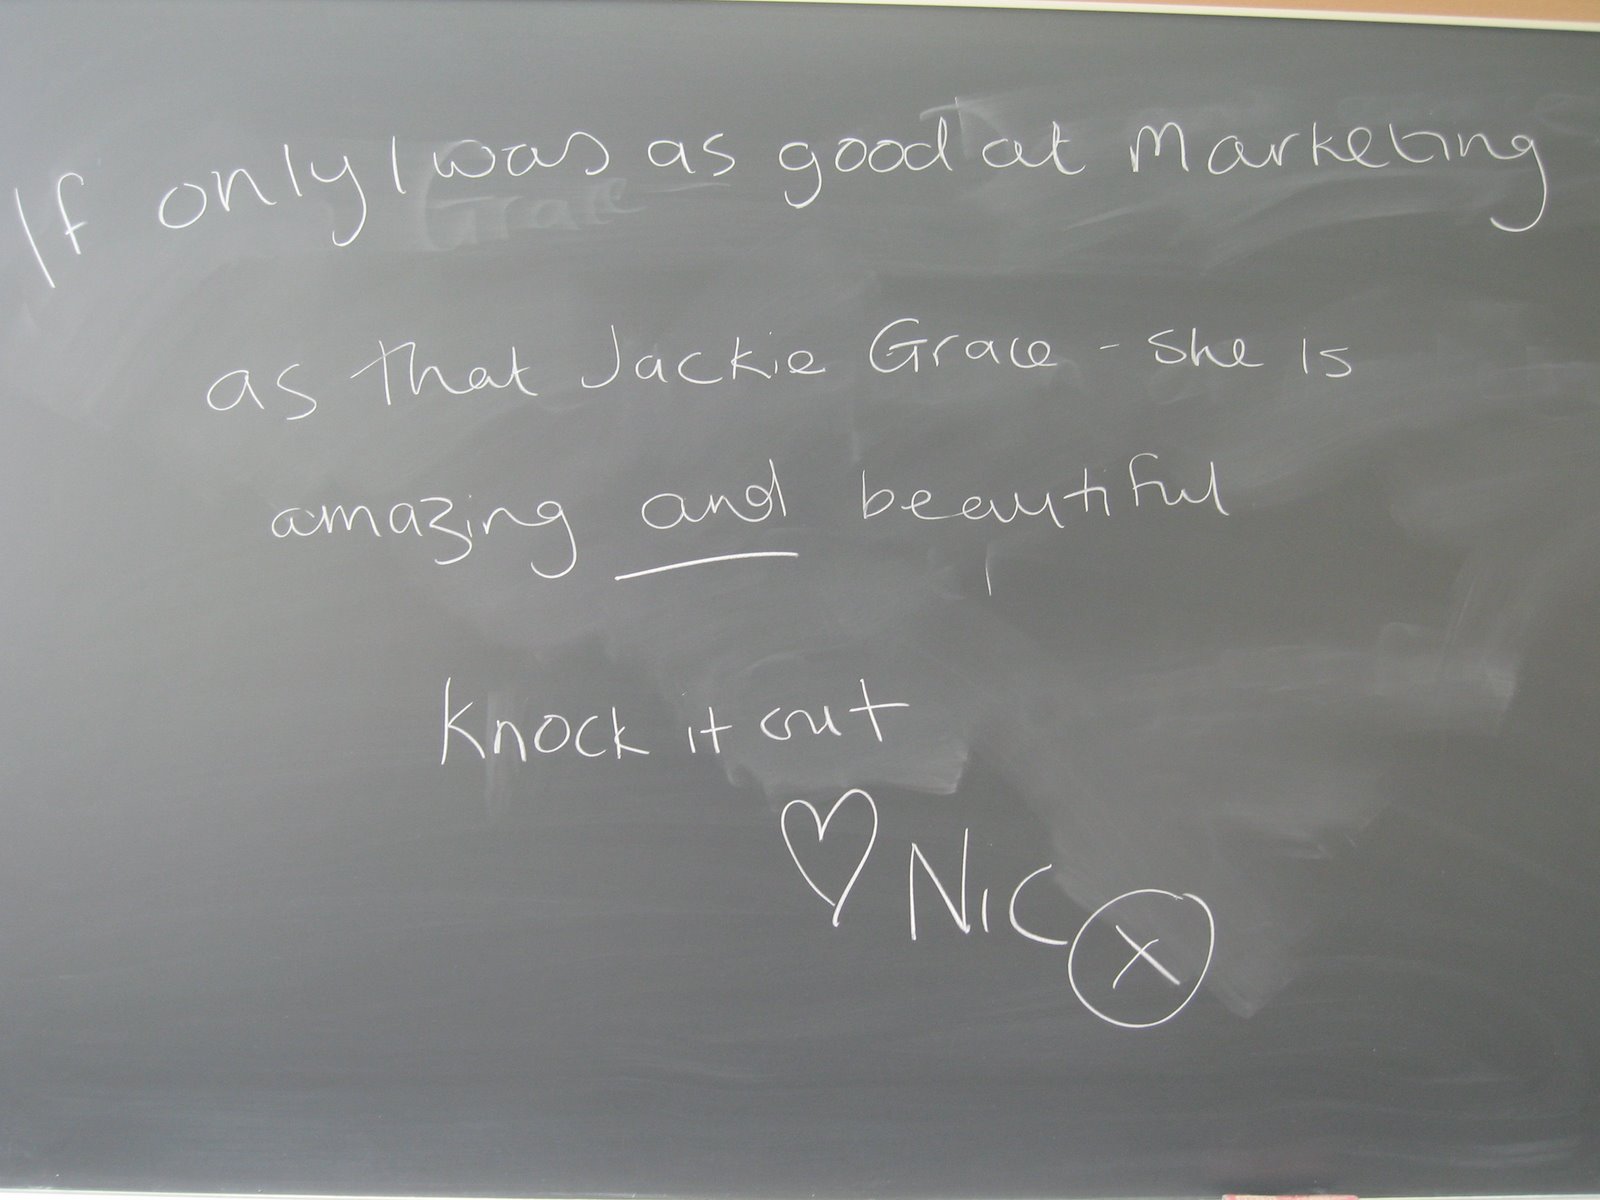 If only I was as good at Marketing
as that Jackie Grace - she is
amazing and beautiful
Knock it out
♡ Nic X